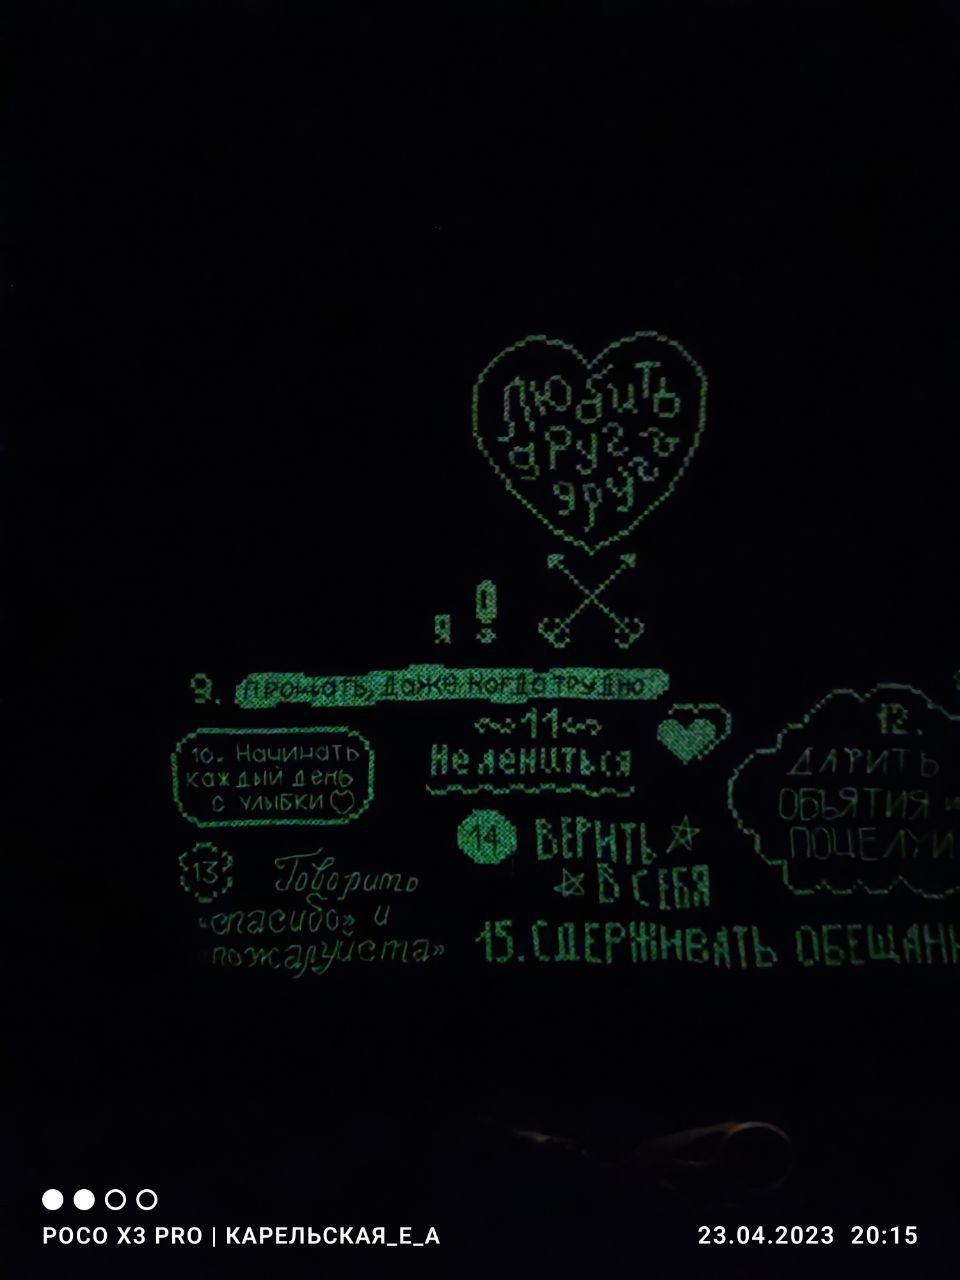 Любить
друг
друг
я !
9. Прощать, даже когда трудно
~11~
Не лениться
12.
ДАРИТЬ
ОБЪЯТИЯ и
ПОЦЕЛУИ
10. Начинать
каждый день
с улыбки
14 ВЕРИТЬ
В СЕБЯ
13 Говорить
«спасибо» и
«пожалуйста»
15. СДЕРЖИВАТЬ ОБЕЩАН
POCO X3 PRO | КАРЕЛЬСКАЯ_E_A
23.04.2023 20:15